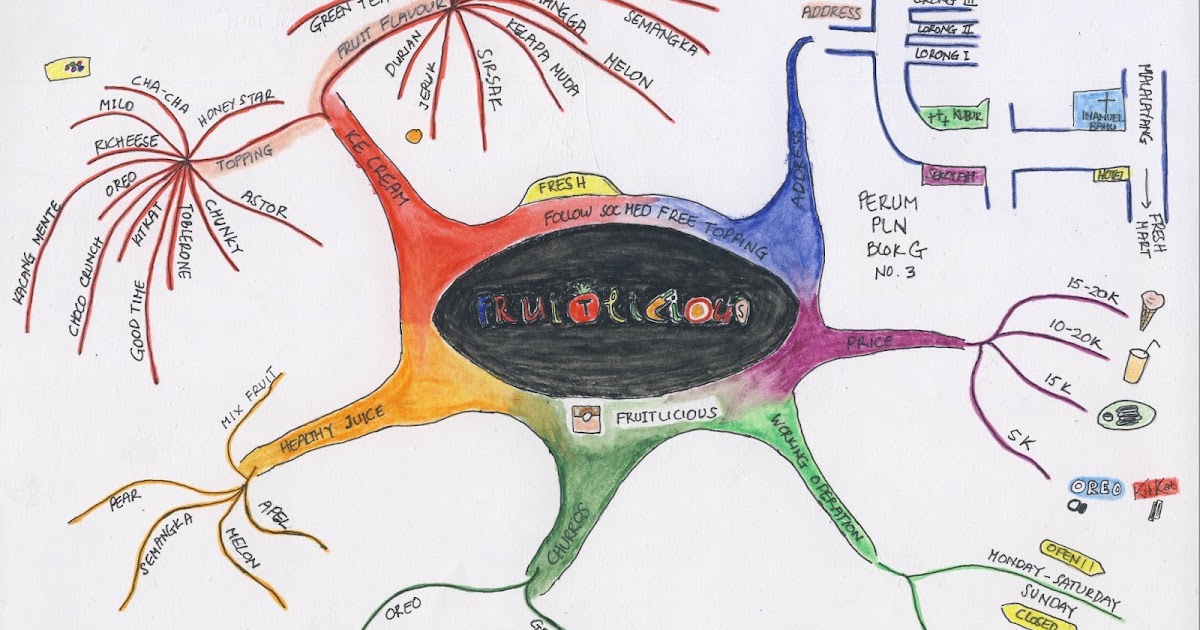 GREEN TE
FRUIT FLAVOUR
DURIAN
JERUK
SIRSAK
KELAPA MUDA
MANGGA
MELON
SEMANGKA
ICE CREAM
TOPPING
CHA-CHA
MILO
HONEY STAR
RICHEESE
OREO
KACANG MENTE
CHOCO CRUNCH
KITKAT
GOOD TIME
TOBLERONE
CHUNKY
ASTOR
FRESH
FOLLOW SOCMED FREE TOPPING
FRUITlicious
FRUITLICIOUS
ADDRESS
ADDRESS
LORONG III
LORONG II
LORONG I
KUBUR
SEKOLAH
IMANUEL
BAHU
HOTEL
MALALAYANG
FRESH
MART
PERUM
PLN
BLOK G
NO. 3
PRICE
15-20K
10-20K
15K
5K
OREO
KitKat
WORKING OPERATION
OPEN!!
MONDAY-SATURDAY
SUNDAY
CLOSED
CHURROS
OREO
HEALTHY JUICE
MIX FRUIT
PEAR
SEMANGKA
MELON
APEL